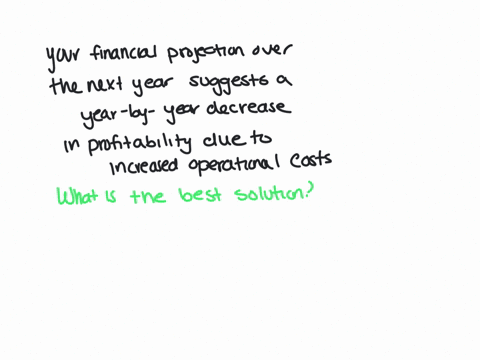 your financial projection over
the next year suggests a
year-by-year decrease
in profitability due to
increased operational costs
What is the best solution?